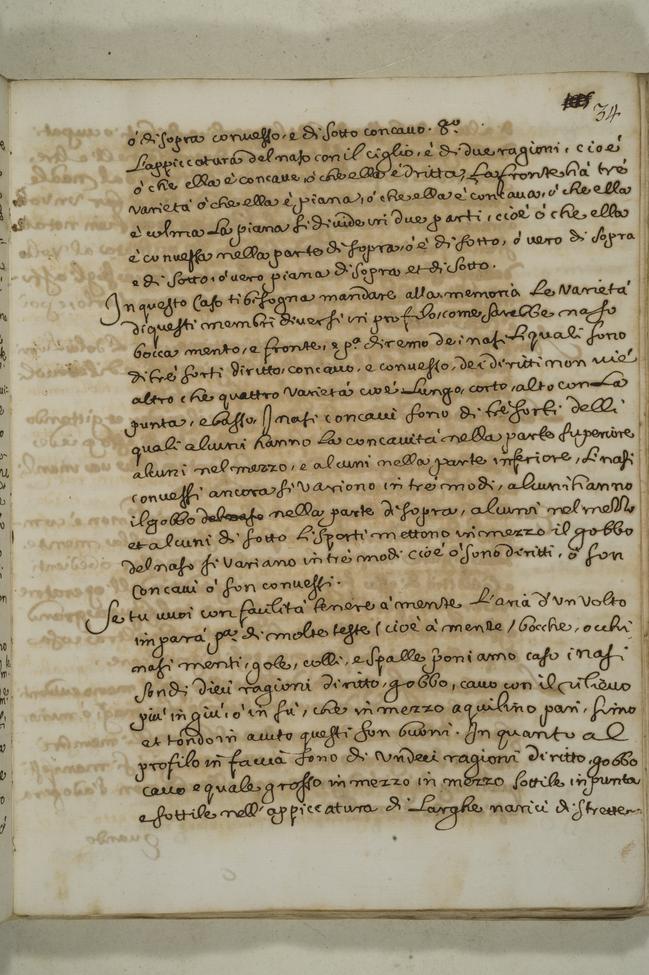 34
ó di sopra convesso, e di sotto concavo. 8º.
L'appiccatura del naso con il ciglio, é di due ragioni, cioé
ó che ella é concava, ó che ella é dritta, La fronte há tré
varietá ó che ella é piana, ó che ella é concava, ó che ella
é colma La piana si divide in due parti, cioé ó che ella
é convessa nella parte di sopra, ó é di sotto, ó vero di sopra
e di sotto, ó vero piana di sopra et di sotto.
In questo Caso ti bisogna mandare alla memoria Le varietá
di questi membri diversi in profilo, come sarebbe naso
bocca, mento, e fronte, e pª. diremo dei nasi Li quali sono
di tré sorti diritto, concavo, e convesso, dei diritti non vi é
altro che quattro varietá cioé Lungo, corto, alto con La
punta, e basso, I nasi concavi sono di tré sorti delli
quali alcuni hanno La concavitá nella parte superiore
alcuni nel mezzo, e alcuni nella parte inferiore, Li nasi
convessi ancora si variono in tré modi, alcuni hanno
il gobbo nella parte di sopra, alcuni nel mezzo
et alcuni di sotto Li sporti mettono in mezzo il gobbo
del naso si variano in tré modi cioé ó sono diritti, ó son
Concavi ó son convessi.
Se tu vuoi con facilitá tenere á mente L'aria d'un volto
impara pª. di molte teste (cioé á mente) bocche, occhi
nasi menti, gole, colli, e spalle poniamo caso i nasi
sondi dieci ragioni diritto, gobbo, cavo con il rilievo
piú in giú, ó in sú, che in mezzo aquilino pari, simo
et tondo in acuto questi son buoni. In quanto al
profilo in faccia sono di undeci ragioni diritto, gobbo
cavo equale grosso in mezzo in mezzo sottile in punta
e sottile nell'appiccatura di Larghe narici di strette
quando